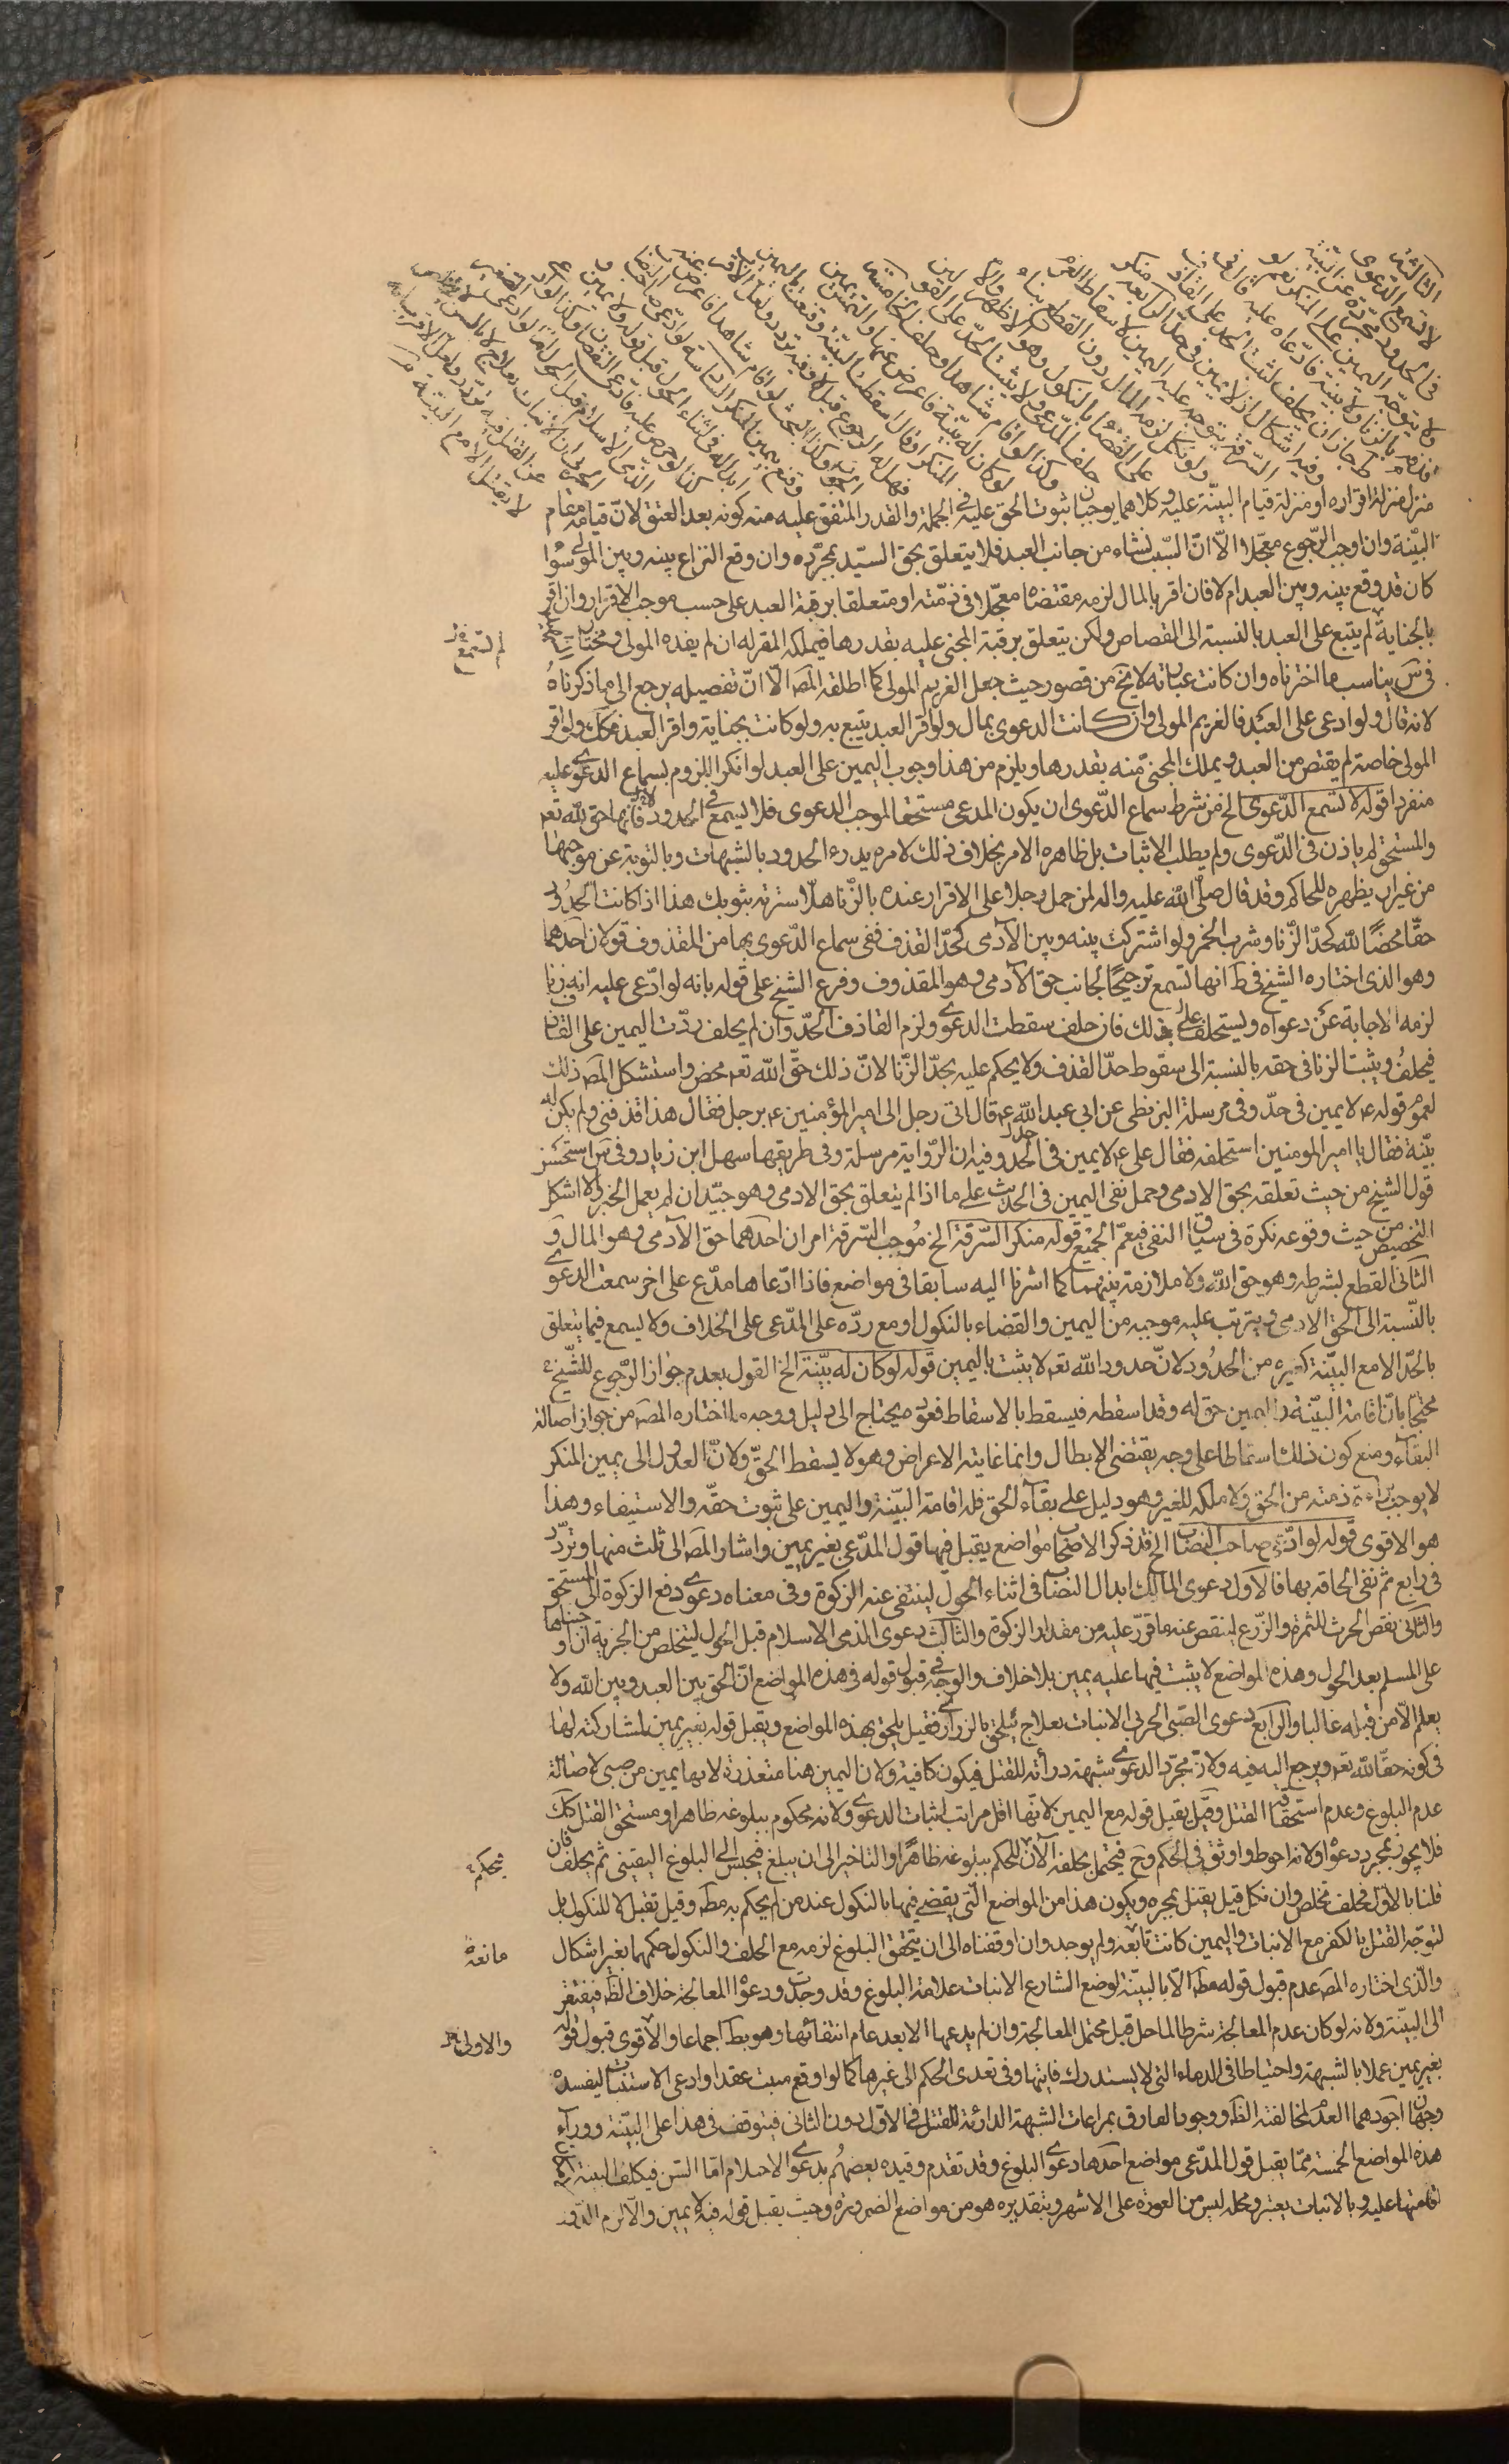 الثالثة
لا تسمع الدعوى
فى الحدود مجردة عن البينة
ولا يتوجه اليمين على المنكر نعم لو
قذفه بالزنا ولا بينة فادعاه عليه قال فى
ط جاز ان يحلف ليثبت الحد على القاذف
وفيه اشكال اذ لا يمين فى حد الرابعة منكر
السرقة يتوجه عليه اليمين لاسقاط الغرم
ولو نكل لزمه المال دون القطع بناء
على القضاء بالنكول وهو الاظهر والا
حلف المدعى ولا يثبت الحد على القولين
وكذا لو اقام شاهدا وحلف الخامسة
لو كان له بينة فاعرض عنها والتمس يمين
المنكر او قال اسقطت البينة وقنعت باليمين
فهل له الرجوع قيل لا وفيه تردد ولعل الاقرب
الجواز وكذا البحث لو اقام شاهدا فاعرض عنه
وقنع بيمين المنكر السادسة لو ادعى صاحب النصاب
ابداله فى اثناء الحول قبل قوله ولا يمين و
كذا لو خرص عليه فادعى النقصان وكذا لو ادعى
الذمى الاسلام قبل الحول اما لو ادعى الصغير
الحربى ان الانبات بعلاج لا بالسن ليتخلص
عن القتل فيه تردد ولعل الاقرب انه
لا يقبل الا مع البينة
منزل منزلة اقراره او منزلة قيام البينة عليه وكلاهما يوجبان ثبوت الحق عليه فى الجملة والقدر المتفق عليه منه كونه بعد العتق لان قيامه مقام
البينة وان اوجب الرجوع معجلا الا ان السبب لنشاء من جانب العبد فلا يتعلق بحق السيد بمجرده وان وقع النزاع بينه وبين المولى سوا
كان قد وقع بينه وبين العبد ام لا فان اقر بالمال لزمه مقتضاه معجلا فى ذمته او متعلقا برقبة العبد على حسب موجب الاقرار وان اقر
بالجناية لم يتبع على العبد بالنسبة الى القصاص ولكن يتعلق برقبة المجنى عليه بقدرها فيملكه المقر له ان لم يفده المولى ومختار المص
فى س يناسب ما اخترناه وان كانت عبارته لا يخ من قصور حيث جعل الغريم المولى كما اطلقه المص الا ان تفصيله يرجع الى ما ذكرناه
لانه قال ولو ادعى على العبد فالغريم المولى وان كانت الدعوى بمال ولو اقر العبد يتبع به ولو كانت بجناية واقر العبد فكك ولو اقر
المولى خاصة لم يقتص من العبد ويملك المجنى منه بقدرها ويلزم من هذا وجوب اليمين على العبد لو انكر اللزوم بسماع الدعوى عليه
منفردا قوله لا تسمع الدعوى الخ من شرط سماع الدعوى ان يكون المدعى مستحقا لموجب الدعوى فلا يسمع فى الحدود لانها حق لله تعـ
والمستحق لم ياذن فى الدعوى ولم يطلب الاثبات بل ظاهره الامر بخلاف ذلك لامره بدرء الحدود بالشبهات وبالتوبة عن موجبها
من غير ان يظهره للحاكم وقد قال صلى الله عليه واله لمن حمل رجلا على الاقرار عنده بالزنا هلا سترته بثوبك هذا اذا كانت الحدود
حقا محضا لله كحد الزنا وشرب الخمر ولو اشتركت بينه وبين الآدمى كحد القذف ففى سماع الدعوى بها من المقذوف قولان احدهما
وهو الذى اختاره الشيخ فى ط انها تسمع ترجيحا لجانب حق الآدمى وهو المقذوف وفرع الشيخ على قوله بانه لو ادعى عليه انه زنا
لزمه الاجابة عن دعواه ويستحلف على ذلك فان حلف سقطت الدعوى ولزم القاذف الحد وان لم يحلف ردت اليمين على القاذف
فيحلف ويثبت الزنا فى حقه بالنسبة الى سقوط حد القذف ولا يحكم عليه بحد الزنا لان ذلك حق الله تعـ محض واستشكل المص ذلك
لعموم قوله ع لا يمين فى حد وفى مرسلة البزنطى عن ابى عبد الله ع قال اتى رجل الى امير المؤمنين ع برجل فقال هذا قذفنى ولم يكن له
بينة فقال يا امير المومنين استحلفه فقال على ع لا يمين فى الحدود وفيه ان الرواية مرسلة وفى طريقها سهل ابن زياد وفى س استحسن
قول الشيخ من حيث تعلقه بحق الادمى وحمل نفى اليمين فى الحديث على ما اذا لم يتعلق بحق الادمى وهو جيد ان لم يعمل الخبر والا اشكل
التخصيص من حيث وقوعه نكرة فى سياق النفى فيعم الجميع قوله منكر السرقة الخ موجب السرقة امران احدهما حق الآدمى وهو المال و
الثانى القطع بشرطه وهو حق الله ولا ملازمة بينهما كما اشرنا اليه سابقا فى مواضع فاذا ادعاها مدع على اخر سمعت الدعوى
بالنسبة الى الحق الادمى ويترتب عليه موجبه من اليمين والقضاء بالنكول او مع رده على المدعى على الخلاف ولا يسمع فيما يتعلق
بالحد الا مع البينة كغيره من الحدود لان حدود الله تعـ لا يثبت باليمين قوله لو كان له بينة الخ القول بعدم جواز الرجوع للشيخ
محتجا بان اقامة البينة واليمين حق له وقد اسقطه فيسقط بالاسقاط فعوده يحتاج الى دليل ووجه ما اختاره المص من جواز اصالة
البقاء ومنع كون ذلك اسقاطا على وجه يقتضى الابطال وانما غايته الاعراض وهو لا يسقط الحق ولان العدول الى يمين المنكر
لا يوجب براءة ذمته من الحق ولا ملكه للغير وهو دليل على بقاء الحق فله اقامة البينة واليمين على ثبوت حقه والاستيفاء وهذا
هو الاقوى قوله لو ادعى صاحب النصاب الخ قد ذكر الاصحاب مواضع يقبل فيها قول المدعى بغير يمين واشار المص الى ثلث منها وتردد
فى رابع ثم نفى الحاقه بها فالاول دعوى المالك ابدال النصاب فى اثناء الحول لينتفى عنه الزكوة وفى معناه دعوى دفع الزكوة الى المستحق
والثانى نقص الخرص للثمرة والزرع لينقص عنه ما قرر عليه من مقدار الزكوة والثالث دعوى الذمى الاسلام قبل الحول ليتخلص من الجزية ان اوجبناها
على المسلم بعد الحول وهذه المواضع لا يثبت فيها عليه يمين بلا خلاف والوجه فى قبول قوله فى هذه المواضع ان الحق بين العبد وبين الله ولا
يعلم الا من قبله غالبا والرابع دعوى الصبى الحربى الانبات بعلاج ليلحق بالذرارى فقيل يلحق بهذه المواضع ويقبل قوله بغير يمين لمشاركته لها
فى كونه حقا لله تعـ ويرجع اليه فيه ولان مجرد الدعوى شبهة درأته للقتل فيكون كافية ولان اليمين هنا متعذرة لانها يمين من صبى لاصالة
عدم البلوغ وعدم استحقاق القتل وقيل يقبل قوله مع اليمين لانها اقل مراتب اثبات الدعوى ولانه محكوم ببلوغه ظاهرا ومستحق القتل فكك
فلا يجوز بمجرد دعواه ولانه احوط واوثق فى الحكم وح فيحتمل يحلفه الآن للحكم ببلوغه ظاهرا والتاخير الى ان يبلغ فيحبس الى البلوغ اليقينى ثم يحلف فان
قلنا بالاول فحلف تخلص وان نكل قيل يقتل بمجره ويكون هذا من المواضع التى يقضى فيها بالنكول عند من لم يحكم به مط وقيل تقبل لا للنكول بل
لتوجه القتل بالكفر مع الانبات واليمين كانت تابعة ولم يوجد وان اوقفناه الى ان يتحقق البلوغ لزمه مع الحلف والنكول حكمهما بغير اشكال
والذى اختاره المص عدم قبول قوله مط الا بالبينة لوضع الشارع الانبات علامة البلوغ وقد وجدت ودعوى المعالجة خلاف الظ فيفتقر
الى البينة ولانه لو كان عدم المعالجة شرطا لما حل قبل محتمل المعالجة وان لم يدعها الا بعد عام انتفائها وهو بط اجماعا والاقوى قبول قوله
بغير يمين عملا بالشبهة واحتياطا فى الدماء التى لا يستدرك فايتها وفى تعدى الحكم الى غيرها كما لو اوقع ميت عقدا وادعى الاستنبات ليفسده
وجهان اجودهما العدم لمخالفته الظ ووجود الفارق بمراعات الشبهة الدارئة للقتل فى الاول دون الثانى فيتوقف فى هذا على البينة ووراء
هذه المواضع الخمسة مما يقبل قول المدعى مواضع احدها دعوى البلوغ وقد تقدم وقيده بعضهم بدعوى الاحتلام اما السن فيكلف البينة
اقامتها عليه وبالانبات يعتبر ومحله ليس من العورة على الاشهر وبتقديره هو من مواضع الضرورة وحيث يقبل قوله فيه لا يمين والا لزم الدور
لم تسمع
فيحكم
مانعة
والاولى